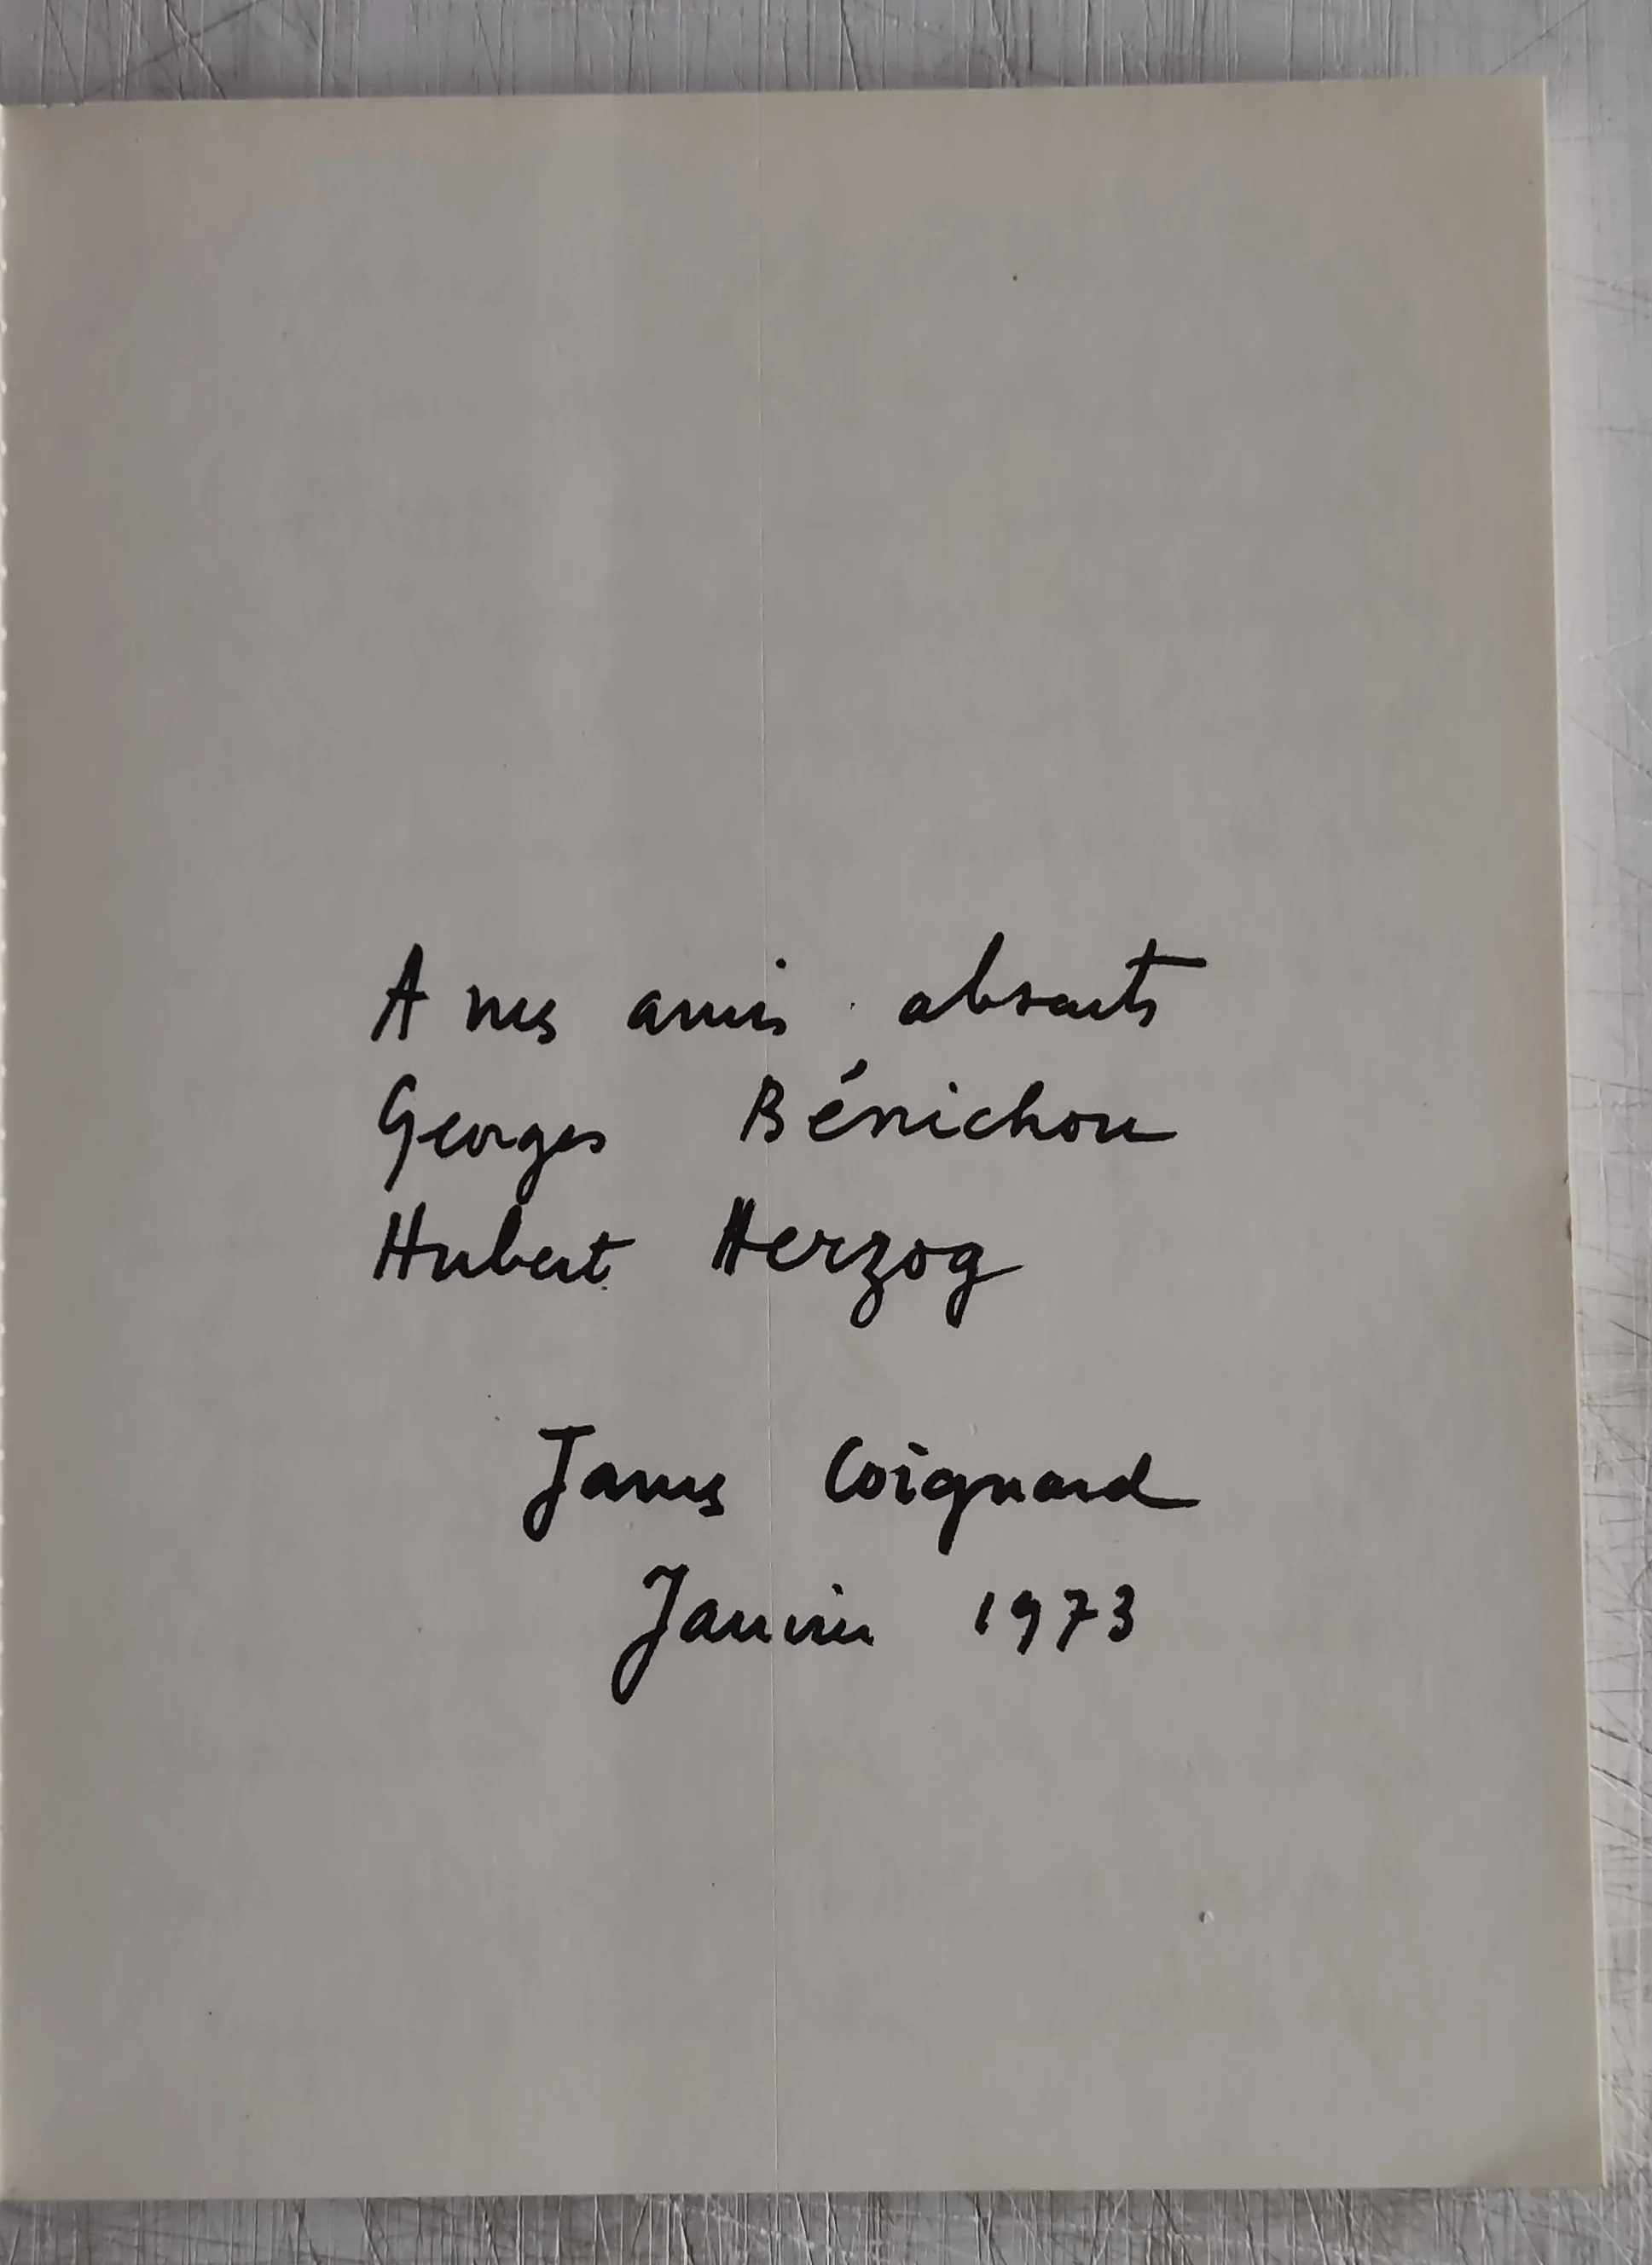 A mes amis absents
Georges Bénichou
Hubert Herzog
James Coignard
Janvier 1973